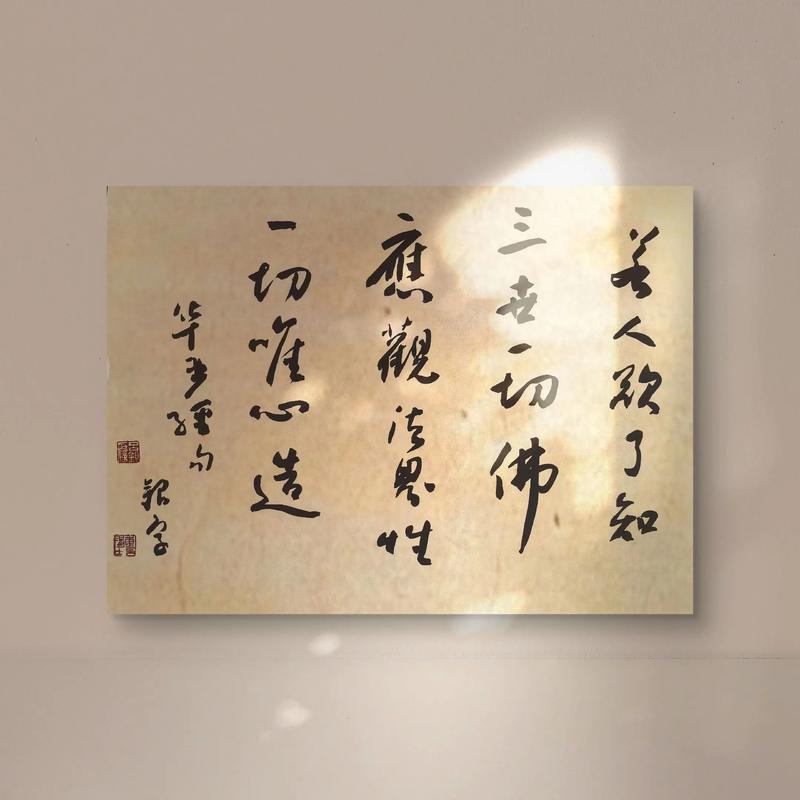 若人欲了知
三世一切佛
應觀法界性
一切唯心造
华严經句